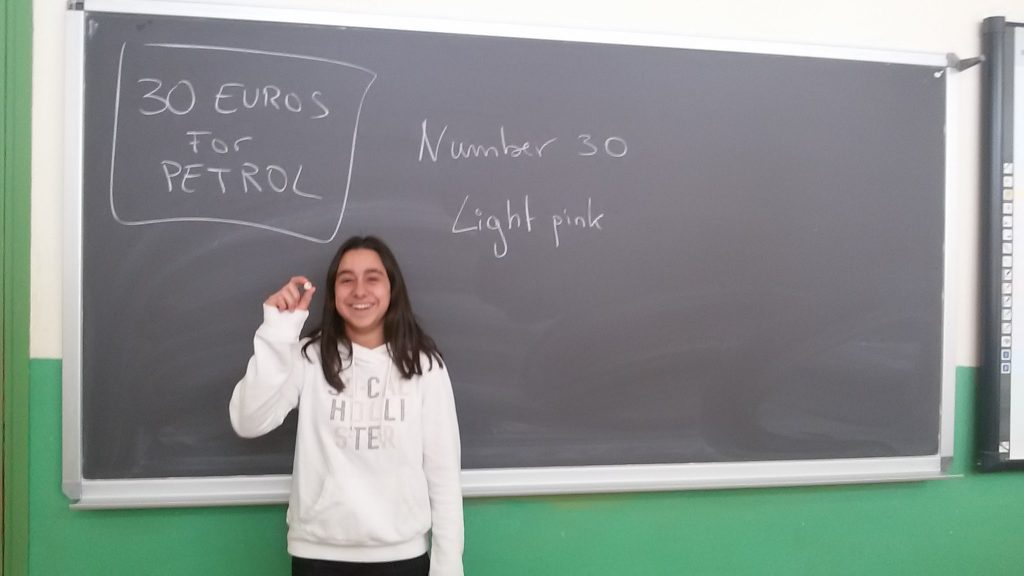 30 EUROS
For
PETROL
Number 30
Light pink
HOLLI
STER